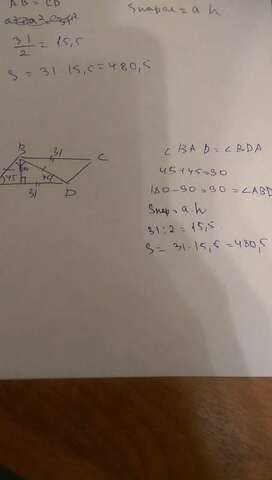 AB = CD
Sпарал = a h
31/2 = 15,5
S = 31 · 15,5 = 480,5
B 31 C
45 45
31 D
∠BAD = ∠BDA
45+45=90
180-90=90=∠ABD
Sпар = a·h
31:2 = 15,5
S = 31·15,5=480,5